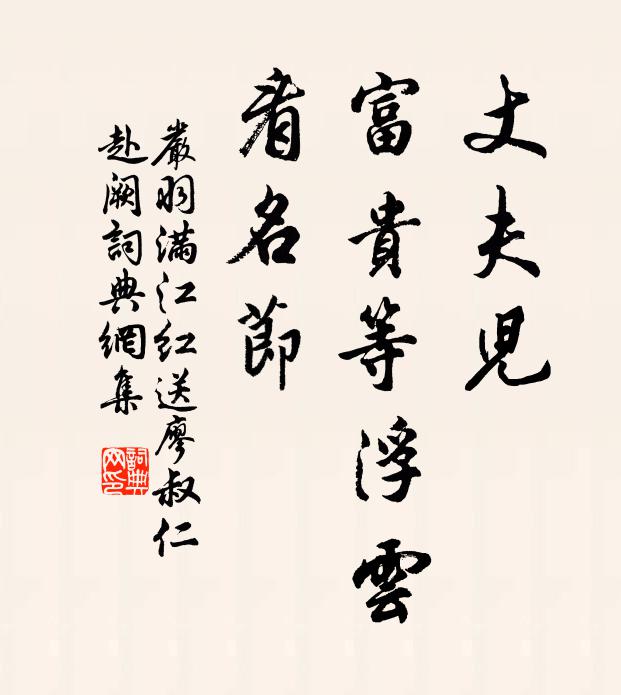 丈夫児
富貴等浮雲
看名節
嚴羽滿江红送廖叔仁
赴阙詞典網集
詞典网印